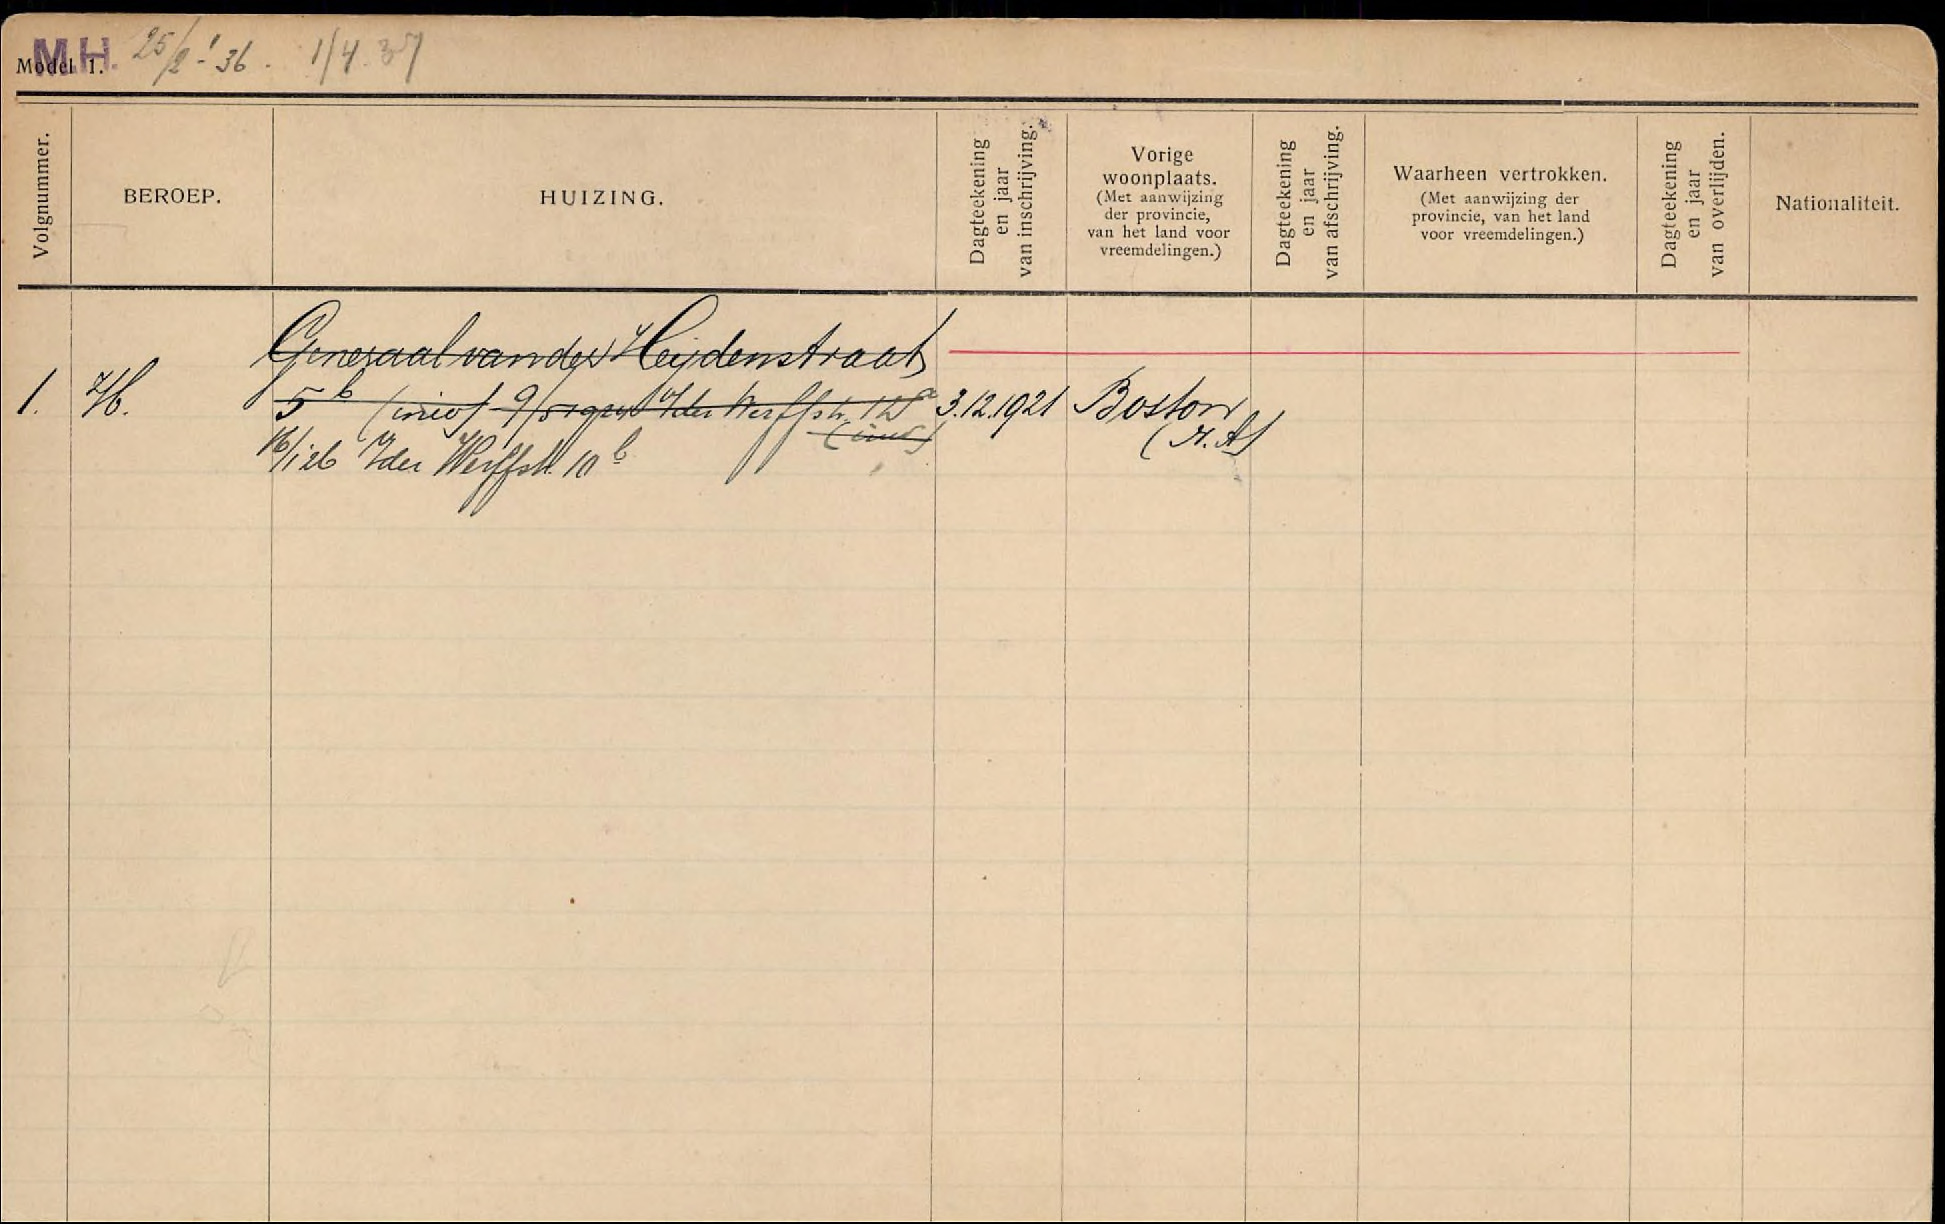 M.H. 25/2-'36. 1/4.37
Model 1.
Volgnummer.
BEROEP.
HUIZING.
Dagteekening
en jaar
van inschrijving.
Vorige
woonplaats.
(Met aanwijzing
der provincie,
van het land voor
vreemdelingen.)
Dagteekening
en jaar
van afschrijving.
Waarheen vertrokken.
(Met aanwijzing der
provincie, van het land
voor vreemdelingen.)
Dagteekening
en jaar
van overlijden.
Nationaliteit.
Generaal van der Heijdenstraat
1. 5 b 3.12.1921 Boston
(N.A)
16/1 26 Vder Werffstr. 10 b